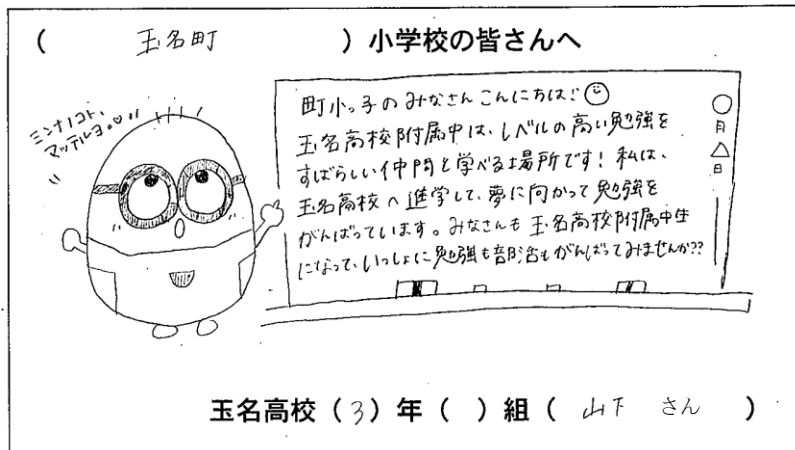 ( 玉名町 ) 小学校の皆さんへ
ミンナノコト、
マッテルヨ。♡
町小っ子のみなさんこんにちは!☺
玉名高校附属中は、レベルの高い勉強を
すばらしい仲間と学べる場所です! 私は、
玉名高校へ進学して、夢に向かって勉強を
がんばっています。みなさんも玉名高校附属中生
になって、いっしょに勉強も部活もがんばってみませんか??
○月△日
玉名高校 (3) 年 ( ) 組 ( 山下 さん )